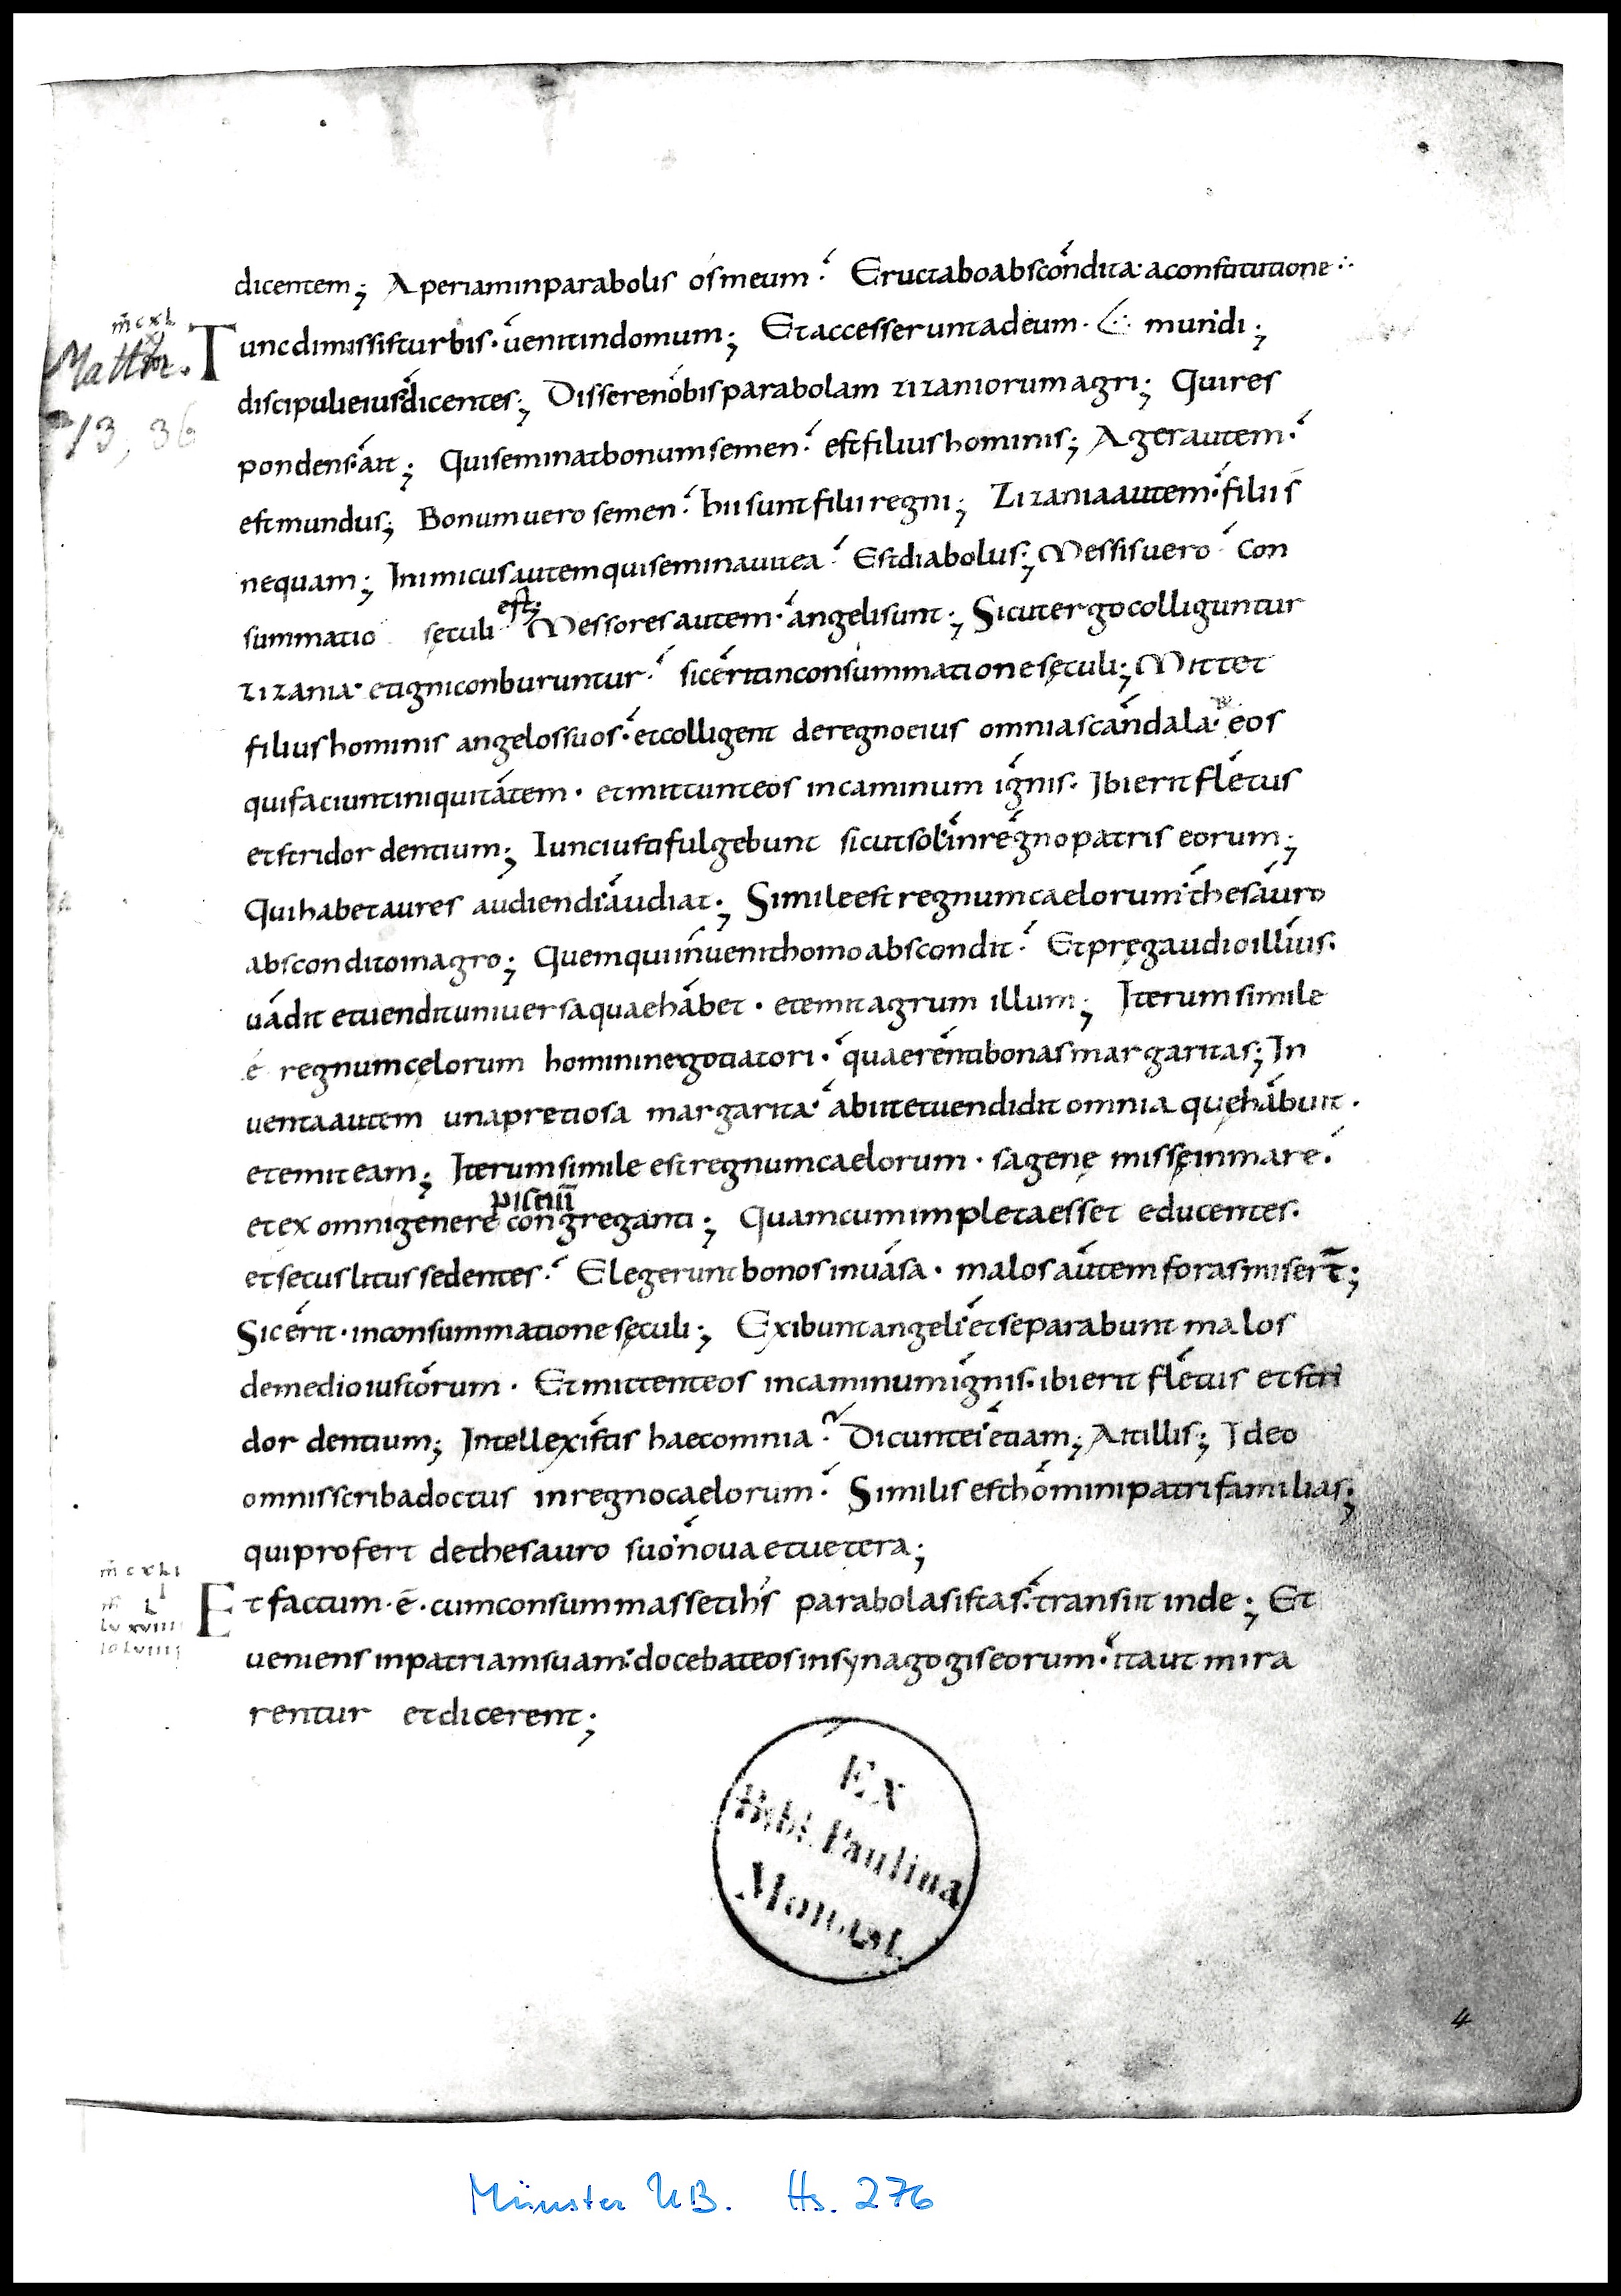 dicentem; Aperiam in parabolis os meum. Eructabo abscondita a constitutione
m̄ cxl
Matth.
13, 36
Tunc dimissis turbis. venit in domum; Et accesserunt ad eum. mundi;
discipuli eius dicentes; Dissere nobis parabolam zizaniorum agri; Qui res
pondens ait; Qui seminat bonum semen. est filius hominis; Ager autem.
est mundus; Bonum uero semen. hii sunt filii regni; Zizania autem. filii s̄
nequam; Inimicus autem qui seminauit ea. Est diabolus; Messis uero. con
summatio sęculi est; Messores autem. angeli sunt; Sicut ergo colliguntur
zizania. et igni conburuntur. sic erit in consummatione sęculi; Mittet
filius hominis angelos suos. et colligent de regno eius omnia scandala. eos
qui faciunt iniquitatem. et mittunt eos in caminum ignis. Ibi erit fletus
et stridor dentium; Tunc iusti fulgebunt sicut sol in regno patris eorum;
Qui habet aures audiendi. audiat; Simile est regnum caelorum. thesauro
abscondito in agro; Quem qui inuenit homo abscondit. Et pręgaudio illius.
uadit et uendit uniuersa quae habet. et emit agrum illum; Iterum simile
ē regnum cęlorum homini negotiatori. quaerenti bonas margaritas; In
uenta autem una pretiosa margarita. abiit et uendidit omnia quę habuit.
et emit eam; Iterum simile est regnum caelorum. sagenę missę in mare.
et ex omni genere pisciū congreganti; Quam cum impleta esset educentes.
et secus litus sedentes. Elegerunt bonos in uasa. malos autem foras misert̄;
Sic erit. in consummatione sęculi; Exibunt angeli. et separabunt malos
de medio iustorum. Et mittent eos in caminum ignis. ibi erit fletus et stri
dor dentium; Intellexistis haec omnia. Dicunt ei etiam; Ait illis; Ideo
omnis scriba doctus in regno caelorum. Similis est homini patri familias;
qui profert de thesauro suo. noua et uetera;
m̄ cxli
Et factum. ē. cum consummasset ihs̄ parabolas istas. transiit inde; Et
ueniens in patriam suam. docebat eos in synagogis eorum. ita ut mira
rentur et dicerent;
Ex
Bibl. Paulina
Monast.
4
Münster UB. Hs. 276